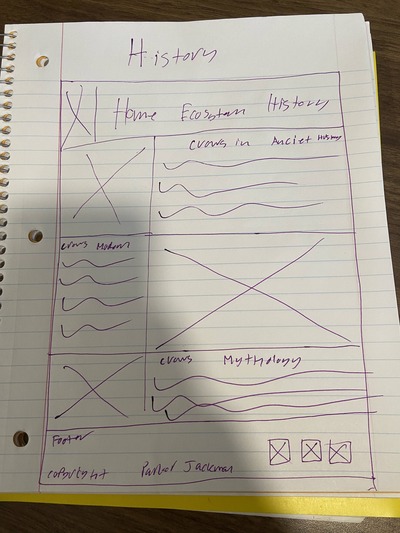 History
Home Ecosystem History
Crows in Anciet History
Crows Modern
Crows Mythology
Footer
copyright Parker Jackman